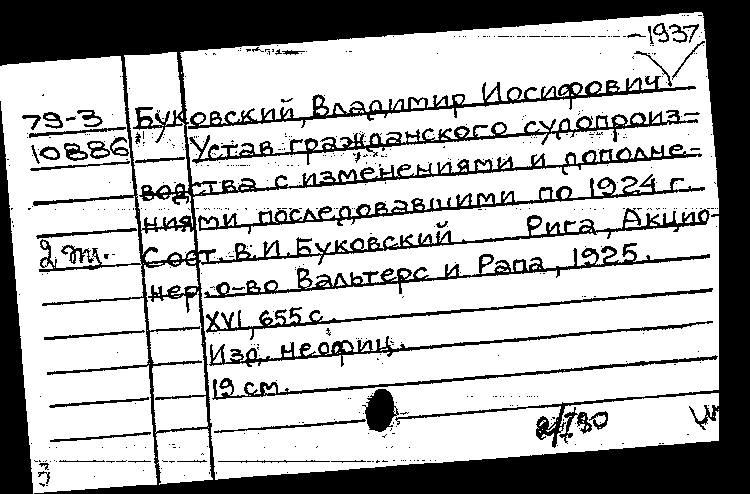 1937
79-3 Буковский, Владимир Иосифович
10886 Устав гражданского судопроиз-
водства с изменениями и дополне-
ниями, последовавшими по 1924 г.
2 Сост. В.И.Буковский. Рига, Акцио-
нер.о-во Вальтерс и Рапа, 1925.
XVI, 655 с.
Изд. неофиц.
19 см.